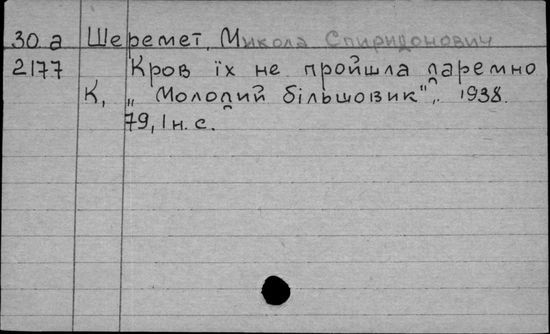 30 а Шеремет, Микола Спиридонович
2177 Кров їх не пройшла даремно
К, „Молодий більшовик", 1938.
79, 1 н. с.